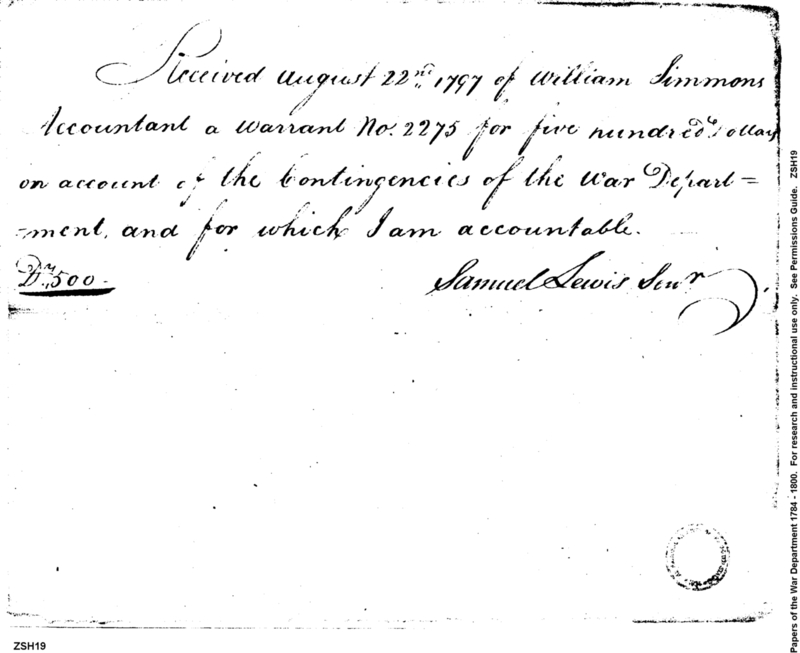 Received August 22nd 1797 of William Simmons
Accountant a Warrant No. 2275 for five hundred Dollars
on account of the Contingencies of the War Depart=
=ment, and for which I am accountable.
Drs 500.
Samuel Lewis Senr
ZSH19
Papers of the War Department 1784 - 1800. For research and instructional use only. See Permissions Guide. ZSH19